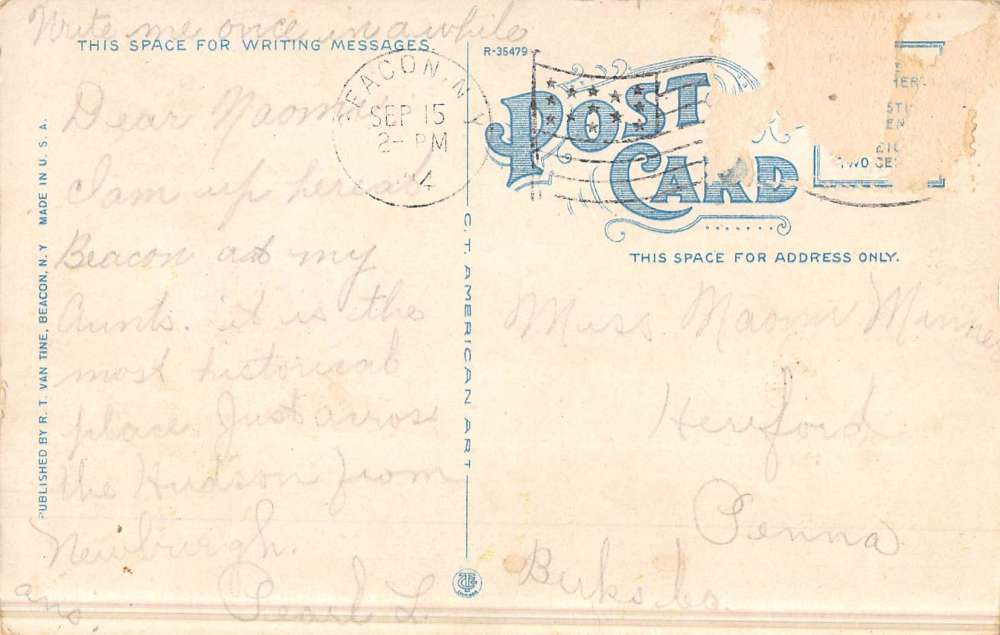 Write me once in a while
THIS SPACE FOR WRITING MESSAGES.
R-35479
BEACON, N.Y.
SEP 15
2- PM
4
POST
CARD
TWO CE
THIS SPACE FOR ADDRESS ONLY.
Dear Naomi
I am up here at
Beacon at my
Aunts. it is the
most historical
place. Just across
the Hudson from
Newburgh.
ans. Pearl L.
PUBLISHED BY R. T. VAN TINE, BEACON, N.Y MADE IN U. S. A.
C. T. AMERICAN ART
Miss Naomi
Hereford
Penna
Berks Co.